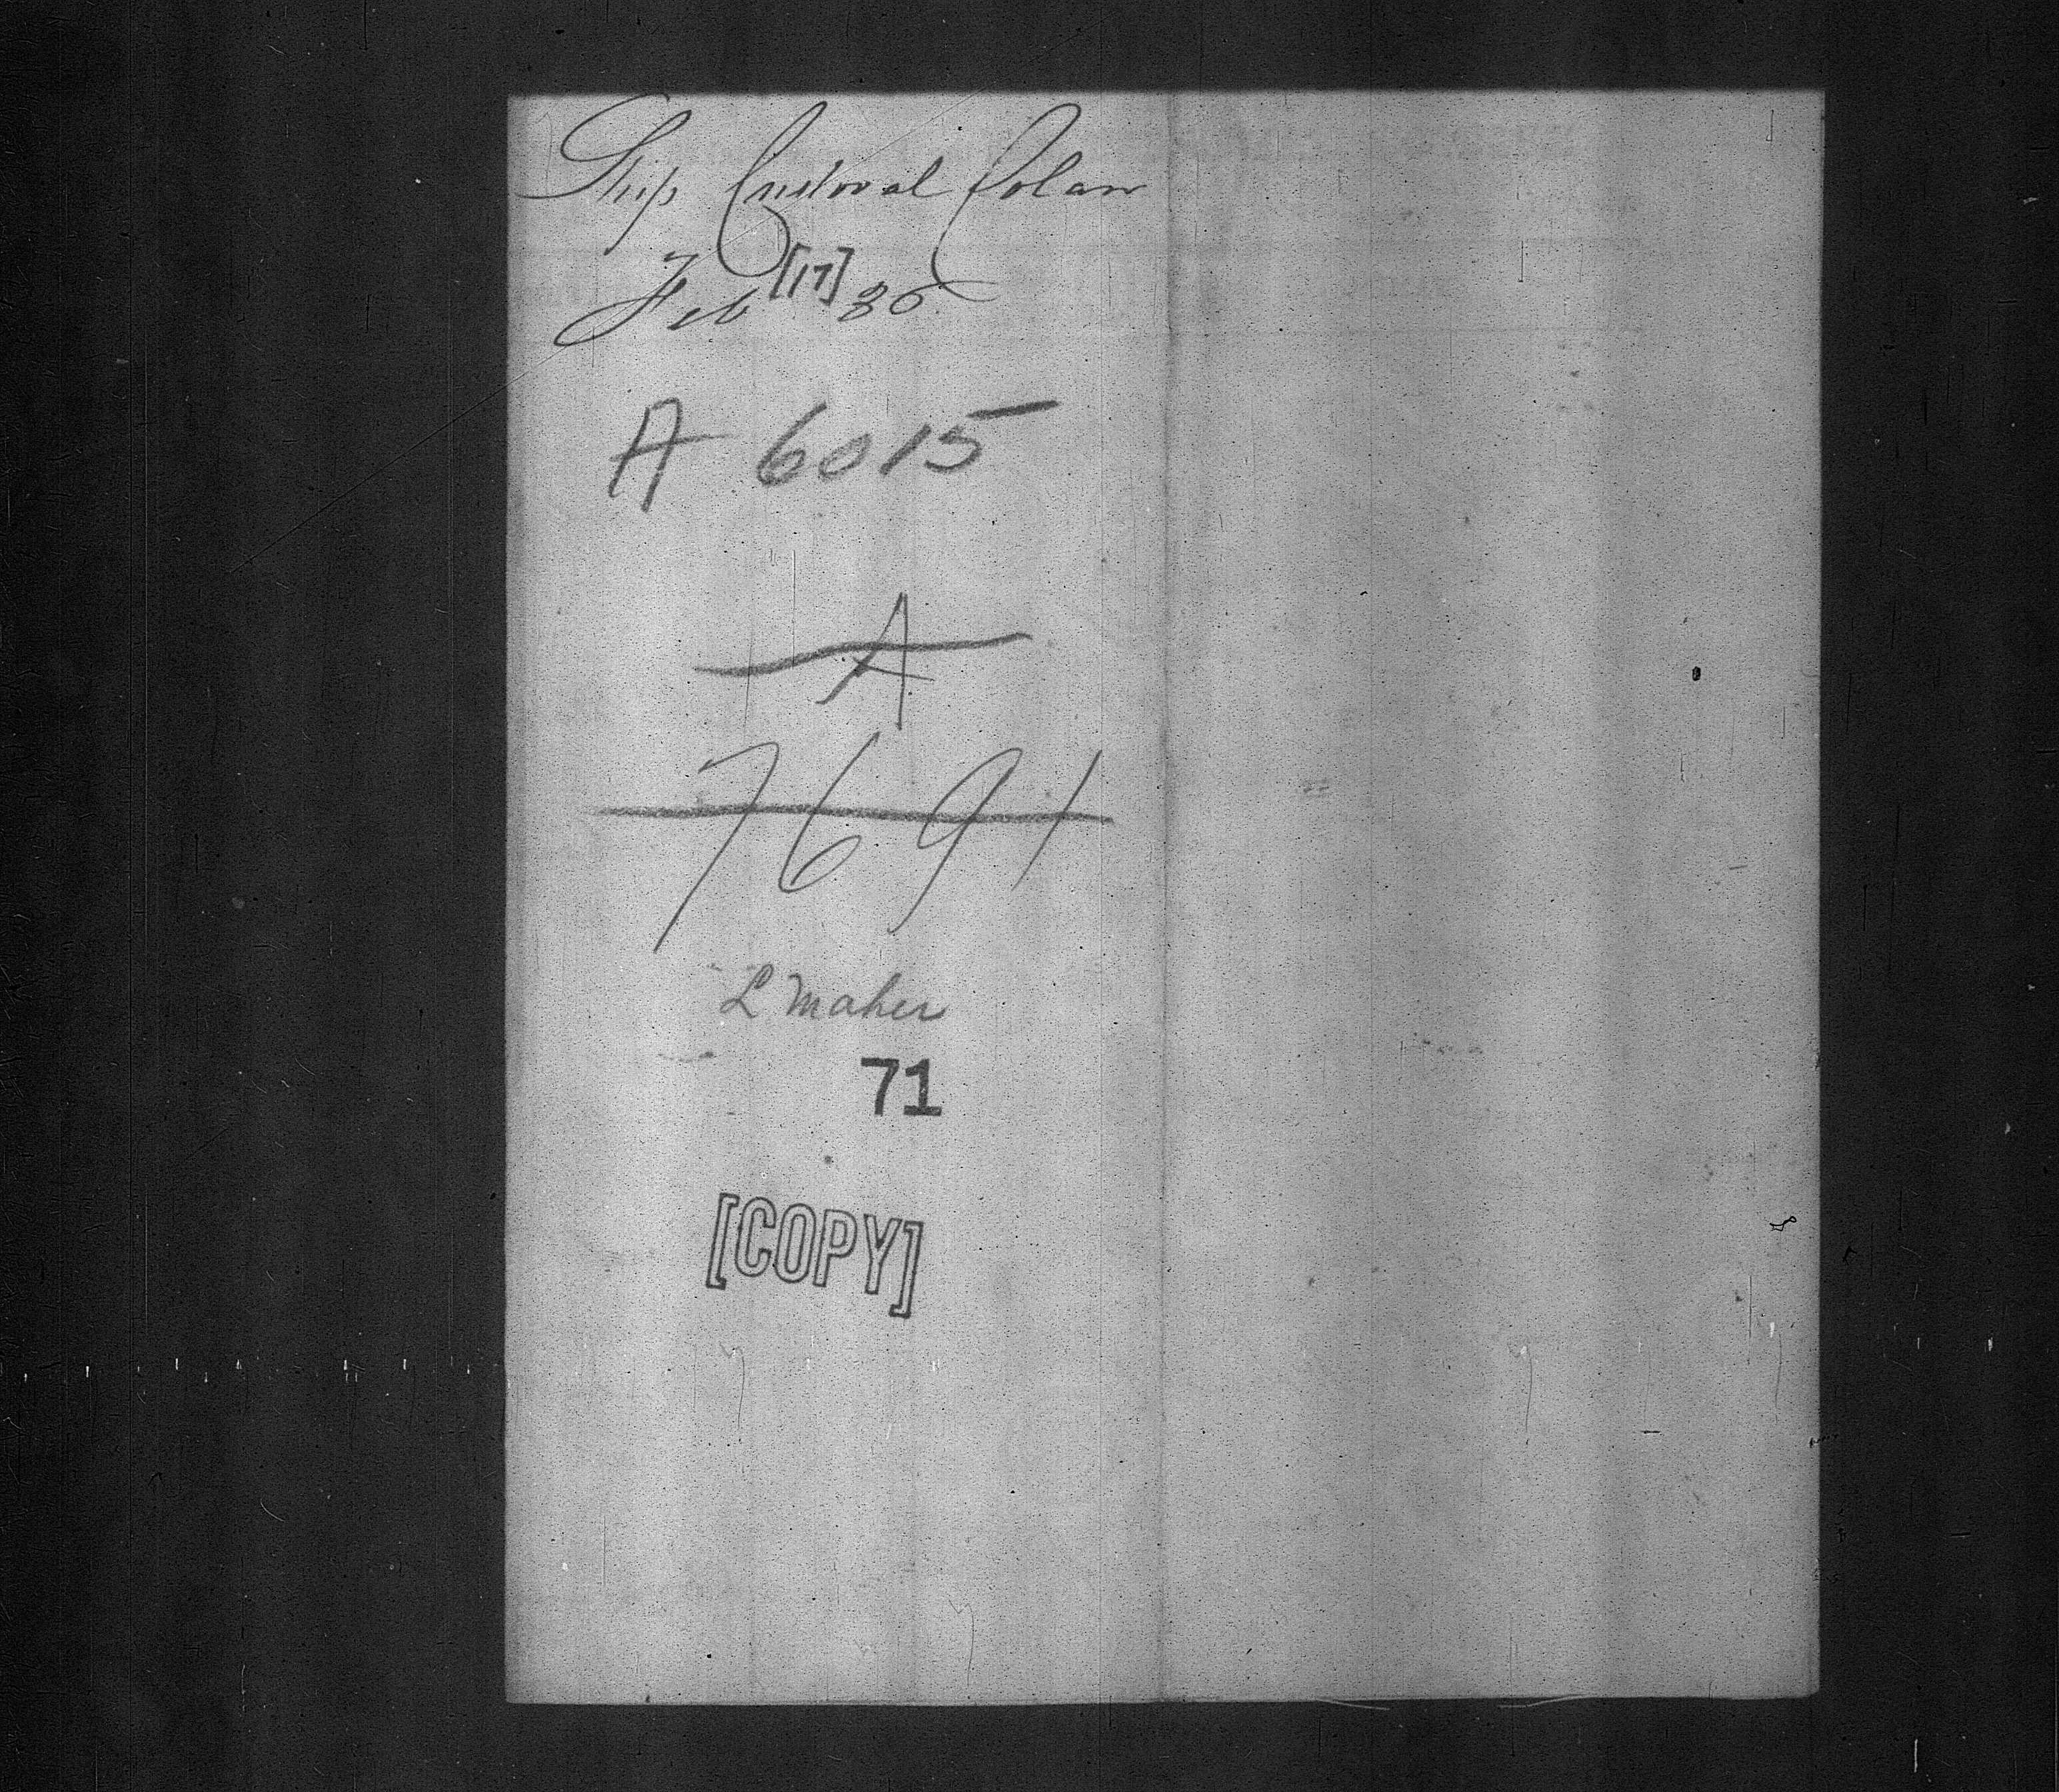 Ship Cristoval Colan
Feb [17] 86
A 6015
A
7691
L Maher
71
[COPY]